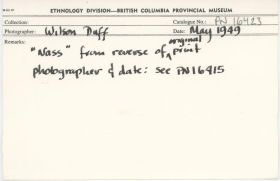 ETHNOLOGY DIVISION—BRITISH COLUMBIA PROVINCIAL MUSEUM
Collection: Catalogue No.: PN 16423
Photographer: Wilson Duff Date: May 1949
Remarks: original
"Nass" from reverse of ^ print
photographer & date: see PN16415